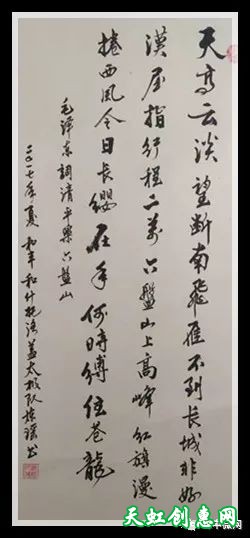 天高云淡望断南飛雁不到长城非好
漢屈指行程二萬六盤山上高峰红旗漫
捲西風今日长缨在手何時缚住苍龍
毛泽东詞清平樂六盤山
二〇一七年夏 和丰和什托洛盖太极队 书
天虹创意网